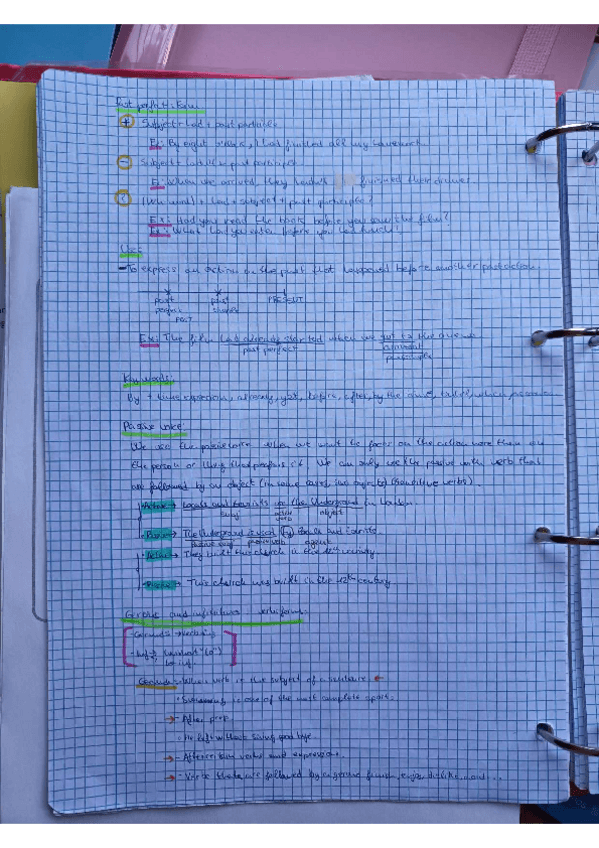 Past perfect: Form
+ Subject + had + past participle
Ex: By eight o'clock, I had finished all my homework.
- Subject + hadn't + past participle
Ex: When we arrived, they hadn't finished their dinner.
? (Wh- word) + had + subject + past participle?
Ex: Had you read the book before you saw the film?
Ex: What had you before you
Use:
- To express an action in the past that happened before another past action.
past past PRESENT
perfect simple
PAST
Ex: The film had already started when we got to the
past perfect
Key words:
By + time expression, already, yet, before, after, by the time, until, when
Passive voice:
We use the passive when we want to focus on the action more than on
the person or thing that performs it. We can only use the passive with verb that
are followed by an object (transitive verbs).
Active → people and tourists use the Underground in London.
subject active verb object
Passive → The Underground is used by people and tourists.
passive verb agent
Active → They built this church in the 12th century.
Passive → This church was built in the 12th century
Gerund and infinitive verb forms:
- Gerund: → verb
- Inf:
Gerunds: When verb is the subject of a sentence ←
· Swimming is one of the most complete sport.
→ - After prep.
· He left without saying goodbye
→ - After certain verbs and expressions.
→ - Verbs that are followed by a gerund: finish, enjoy, dislike, mind...